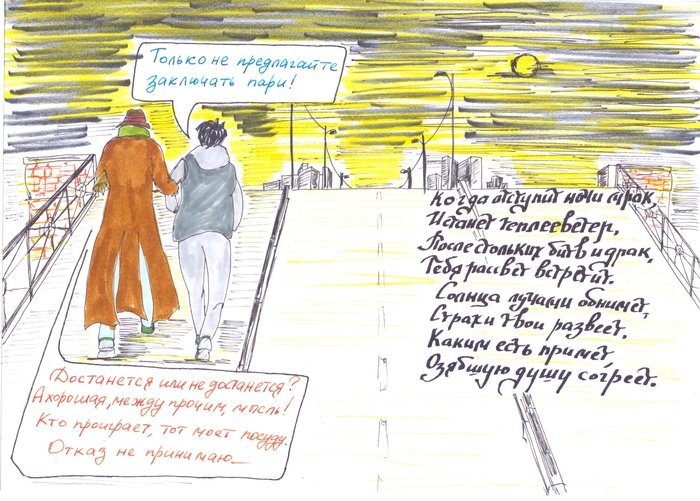 Только не предлагайте
заключать пари!
Достанется или не достанется?
А хорошая, между прочим, мысль!
Кто проиграет, тот моет посуду.
Отказ не принимаю_
Когда отступит ночи мрак,
И станет теплее ветер,
После стольких битв и драк,
Тебя рассвет встретит.
Солнца лучами обнимет,
Страхи твои развеет,
Каким есть примет
Озябшую душу согреет.